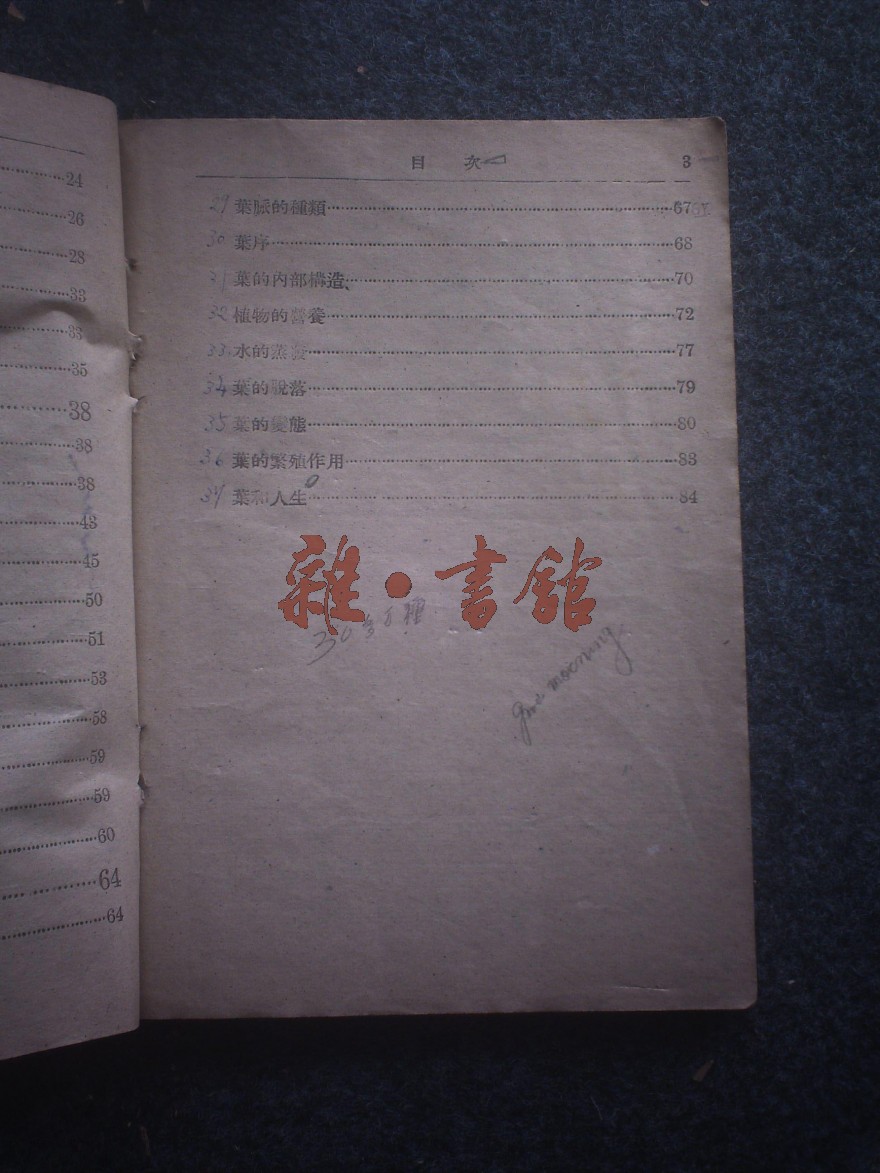 24
26
28
33
33
35
38
38
38
43
45
50
51
53
58
59
59
60
64
64
目 次 3
29 葉脈的種類 67
30 葉序 68
31 葉的內部構造 70
32 植物的營養 72
33 水的蒸發 77
34 葉的脫落 79
35 葉的變態 80
36 葉的繁殖作用 83
37 葉和人生 84
雜·書館
30多万種
good moorning